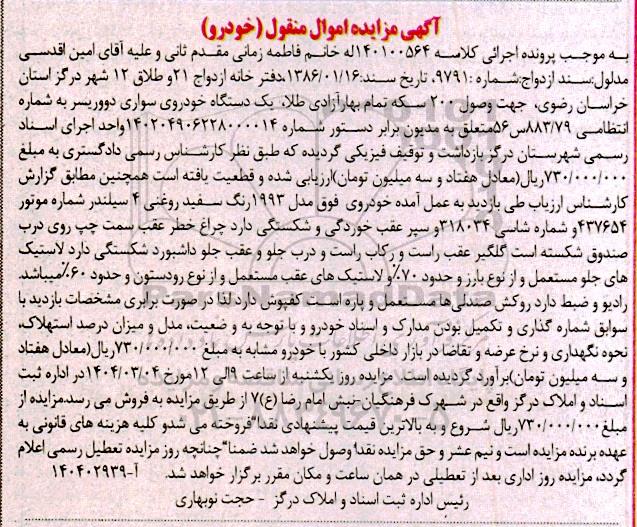 آگهی مزایده اموال منقول (خودرو)
به موجب پرونده اجرائی کلاسه ۱۴۰۱۰۰۵۶۴له خانم فاطمه زمانی مقدم ثانی و علیه آقای امین اقدسی
مدلول:سند ازدواج:شماره :۹۷۹۱، تاریخ سند:۱۳۸۶/۰۱/۱۶،دفتر خانه ازدواج ۲۱و طلاق ۱۲ شهر درگز استان
خراسان رضوی، جهت وصول ۲۰۰ سکه تمام بهارآزادی طلا، یک دستگاه خودروی سواری دووریسر به شماره
انتظامی ۸۸۳/۷۹س۵۶متعلق به مدیون برابر دستور شماره ۱۴۰۲۰۴۹۰۶۲۲۸۰۰۰۰۱۴واحد اجرای اسناد
رسمی شهرستان درگز بازداشت و توقیف فیزیکی گردیده که طبق نظر کارشناس رسمی دادگستری به مبلغ
۷۳۰/۰۰۰/۰۰۰ریال(معادل هفتاد و سه میلیون تومان)ارزیابی شده و قطعیت یافته است همچنین مطابق گزارش
کارشناس ارزیاب طی بازدید به عمل آمده خودروی فوق مدل ۱۹۹۳رنگ سفید روغنی ۴ سیلندر شماره موتور
۴۳۷۶۵۴و شماره شاسی ۳۱۸۰۳۴و سپر عقب خوردگی و شکستگی دارد چراغ خطر عقب سمت چپ روی درب
صندوق شکسته است گلگیر عقب راست و رکاب راست و درب جلو و عقب جلو داشبورد شکستگی دارد لاستیک
های جلو مستعمل و از نوع بارز و حدود ۷۰٪و لاستیک های عقب مستعمل و از نوع رودستون و حدود ۶۰٪میباشد.
رادیو و ضبط دارد روکش صندلی‌ها مستعمل و پاره است کفپوش دارد لذا در صورت برابری مشخصات بازدید با
سوابق شماره گذاری و تکمیل بودن مدارک و اسناد خودرو و با توجه به و ضعیت، مدل و میزان درصد استهلاک،
نحوه نگهداری و نرخ عرضه و تقاضا در بازار داخلی کشور با خودرو مشابه به مبلغ ۷۳۰/۰۰۰/۰۰۰ریال(معادل هفتاد
و سه میلیون تومان)برآورد گردیده است. مزایده روز یکشنبه از ساعت ۹الی ۱۲مورخ ۱۴۰۴/۰۳/۰۴در اداره ثبت
اسناد و املاک درگز واقع در شهرک فرهنگیان-نبش امام رضا (ع)۷ از طریق مزایده به فروش می رسد.مزایده از
مبلغ۷۳۰/۰۰۰/۰۰۰ریال شروع و به بالاترین قیمت پیشنهادی نقدا"فروخته می شدو کلیه هزینه های قانونی به
عهده برنده مزایده است و نیم عشر و حق مزایده نقدا"وصول خواهد شد ضمنا"چنانچه روز مزایده تعطیل رسمی اعلام
گردد، مزایده روز اداری بعد از تعطیلی در همان ساعت و مکان مقرر برگزار خواهد شد. آ-۱۴۰۴۰۲۹۳۹
رئیس اداره ثبت اسناد و املاک درگز - حجت نوبهاری